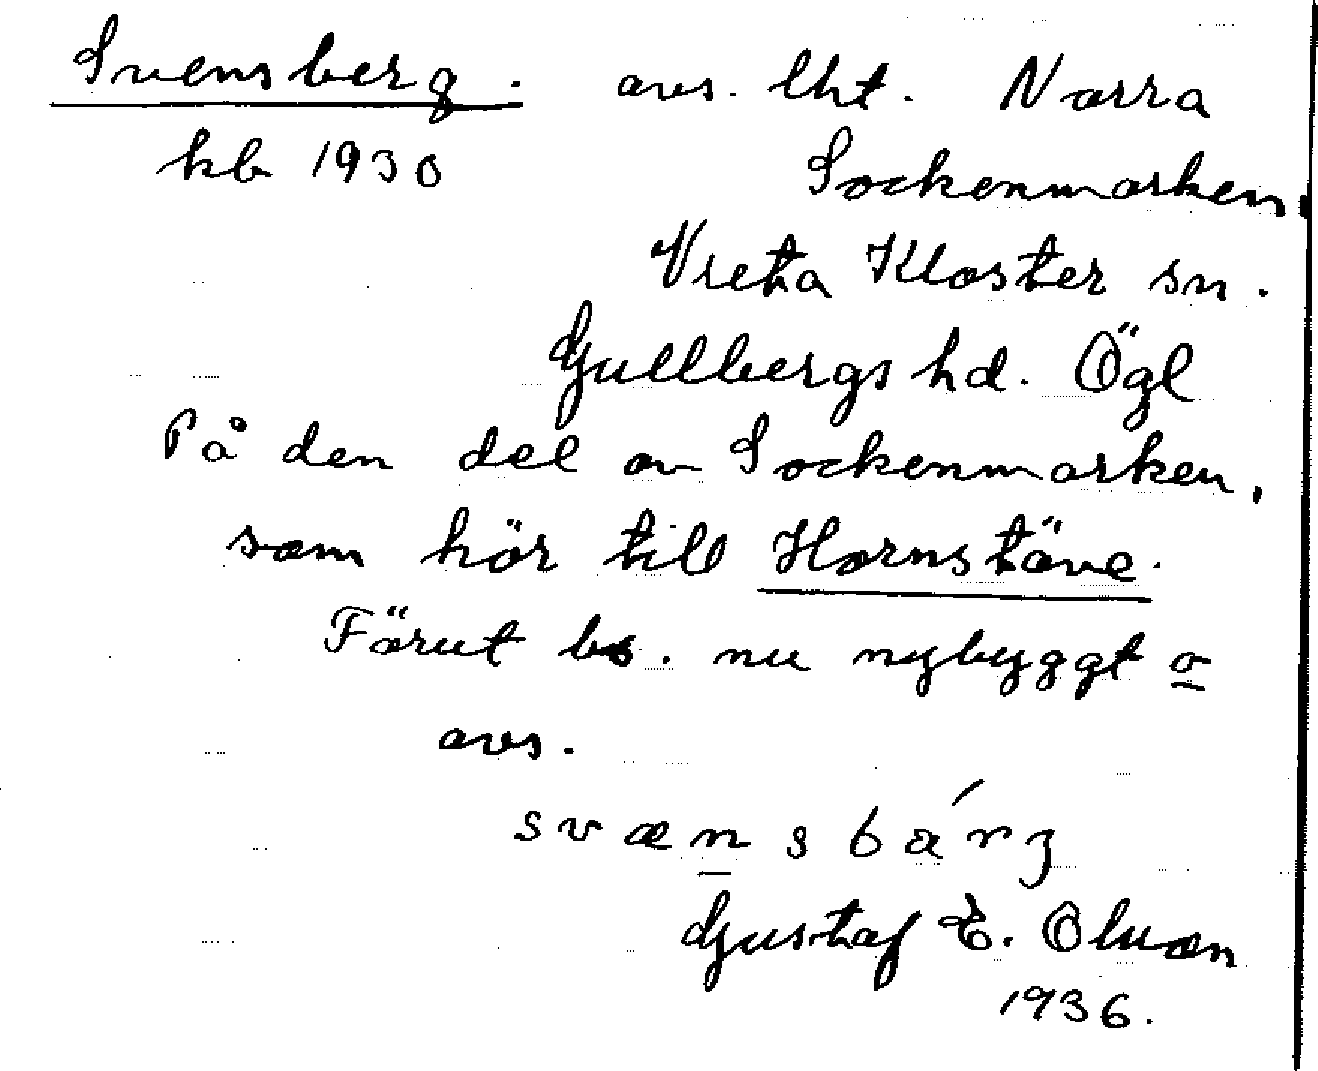 Svensberg. avs. lht. Norra
kb 1930 Sockenmarken,
Vreta Kloster sn.
Gullbergs hd. Ögl
På den del av Sockenmarken,
som hör till Hornstäve.
Förut bs. nu nybyggt o
avs.
svænsbárʒ
Gustaf E. Olsson
1936.